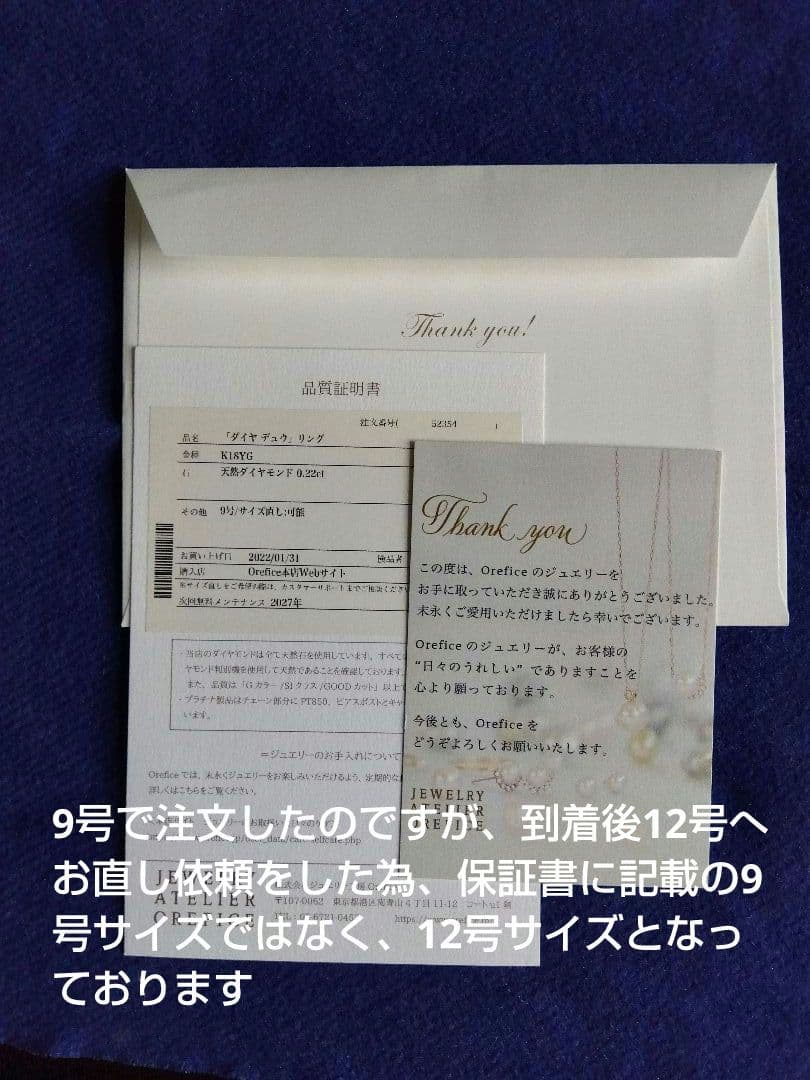 Thank you!
品質証明書
注文番号( 52354
品名 「ダイヤ デュウ」リング
金種 K18YG
石 天然ダイヤモンド 0.22ct
その他 9号/サイズ直し:可能
お買い上げ日 2022/01/31 検品者
購入店 Orefice本店Webサイト
※サイズ直しをご希望の際は、カスタマーサポートまでご相談ください
次回無料メンテナンス 2027年
・当店のダイヤモンドは全て天然石を使用しています。すべて
ヤモンド判別機を使用して天然であることを確認しております
また、品質は「Gカラー/SIクラス/GOODカット」以上
・プラチナ製品はチェーン部分にPT850、ピアスポストとキャ
います。
=ジュエリーのお手入れについて
Orefice では、末永くジュエリーをお楽しみいただけるよう、定期的な
詳しくはこちらをご覧ください。
JEWELRY
ATELIER
OREFICE
〒107-0062 東京都港区南青山4丁目11-12
Thank you
この度は、Orefice のジュエリーを
お手に取っていただき誠にありがとうございました。
末永くご愛用いただけましたら幸いでございます。
Orefice のジュエリーが、お客様の
“日々のうれしい” でありますことを
心より願っております。
今後とも、Orefice を
どうぞよろしくお願いいたします。
JEWELRY
ATELIER
OREFICE
9号で注文したのですが、到着後12号へ
お直し依頼をした為、保証書に記載の9
号サイズではなく、12号サイズとなっ
ております